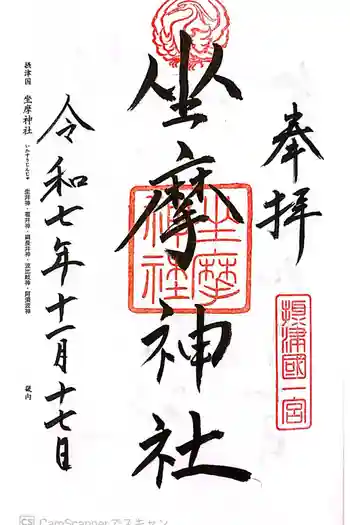 奉拝
摂津國一宮
坐摩神社
坐摩神社
令和七年十一月十七日
摂津国 坐摩神社 いかすりじんじゃ 生井神・福井神・綱長井神・波比祇神・阿須波神
CS CamScannerでスキャン